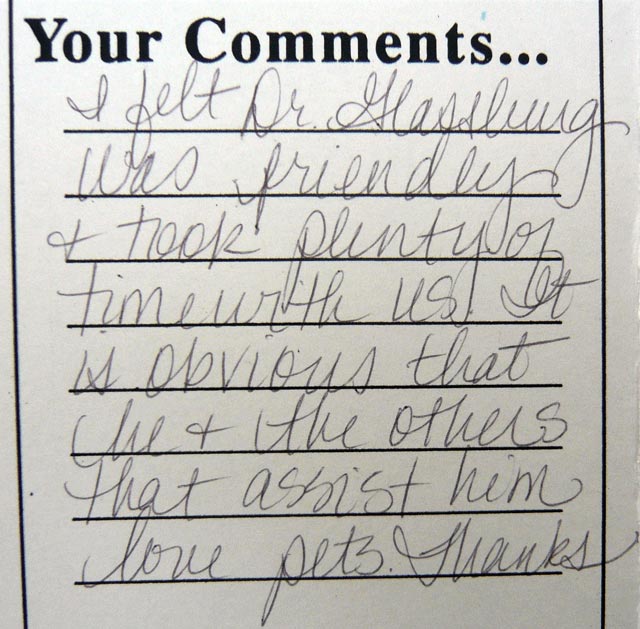 Your Comments...
I felt Dr. Glassburg
was friendly
& took plenty of
time with us. It
is obvious that
he & the others
that assist him
love pets. Thanks